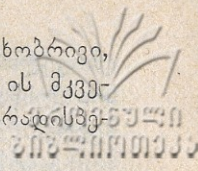 ხობრივი,
ის მკვე-
რადისფე-
ეროვნული
ბიბლიოთეკა